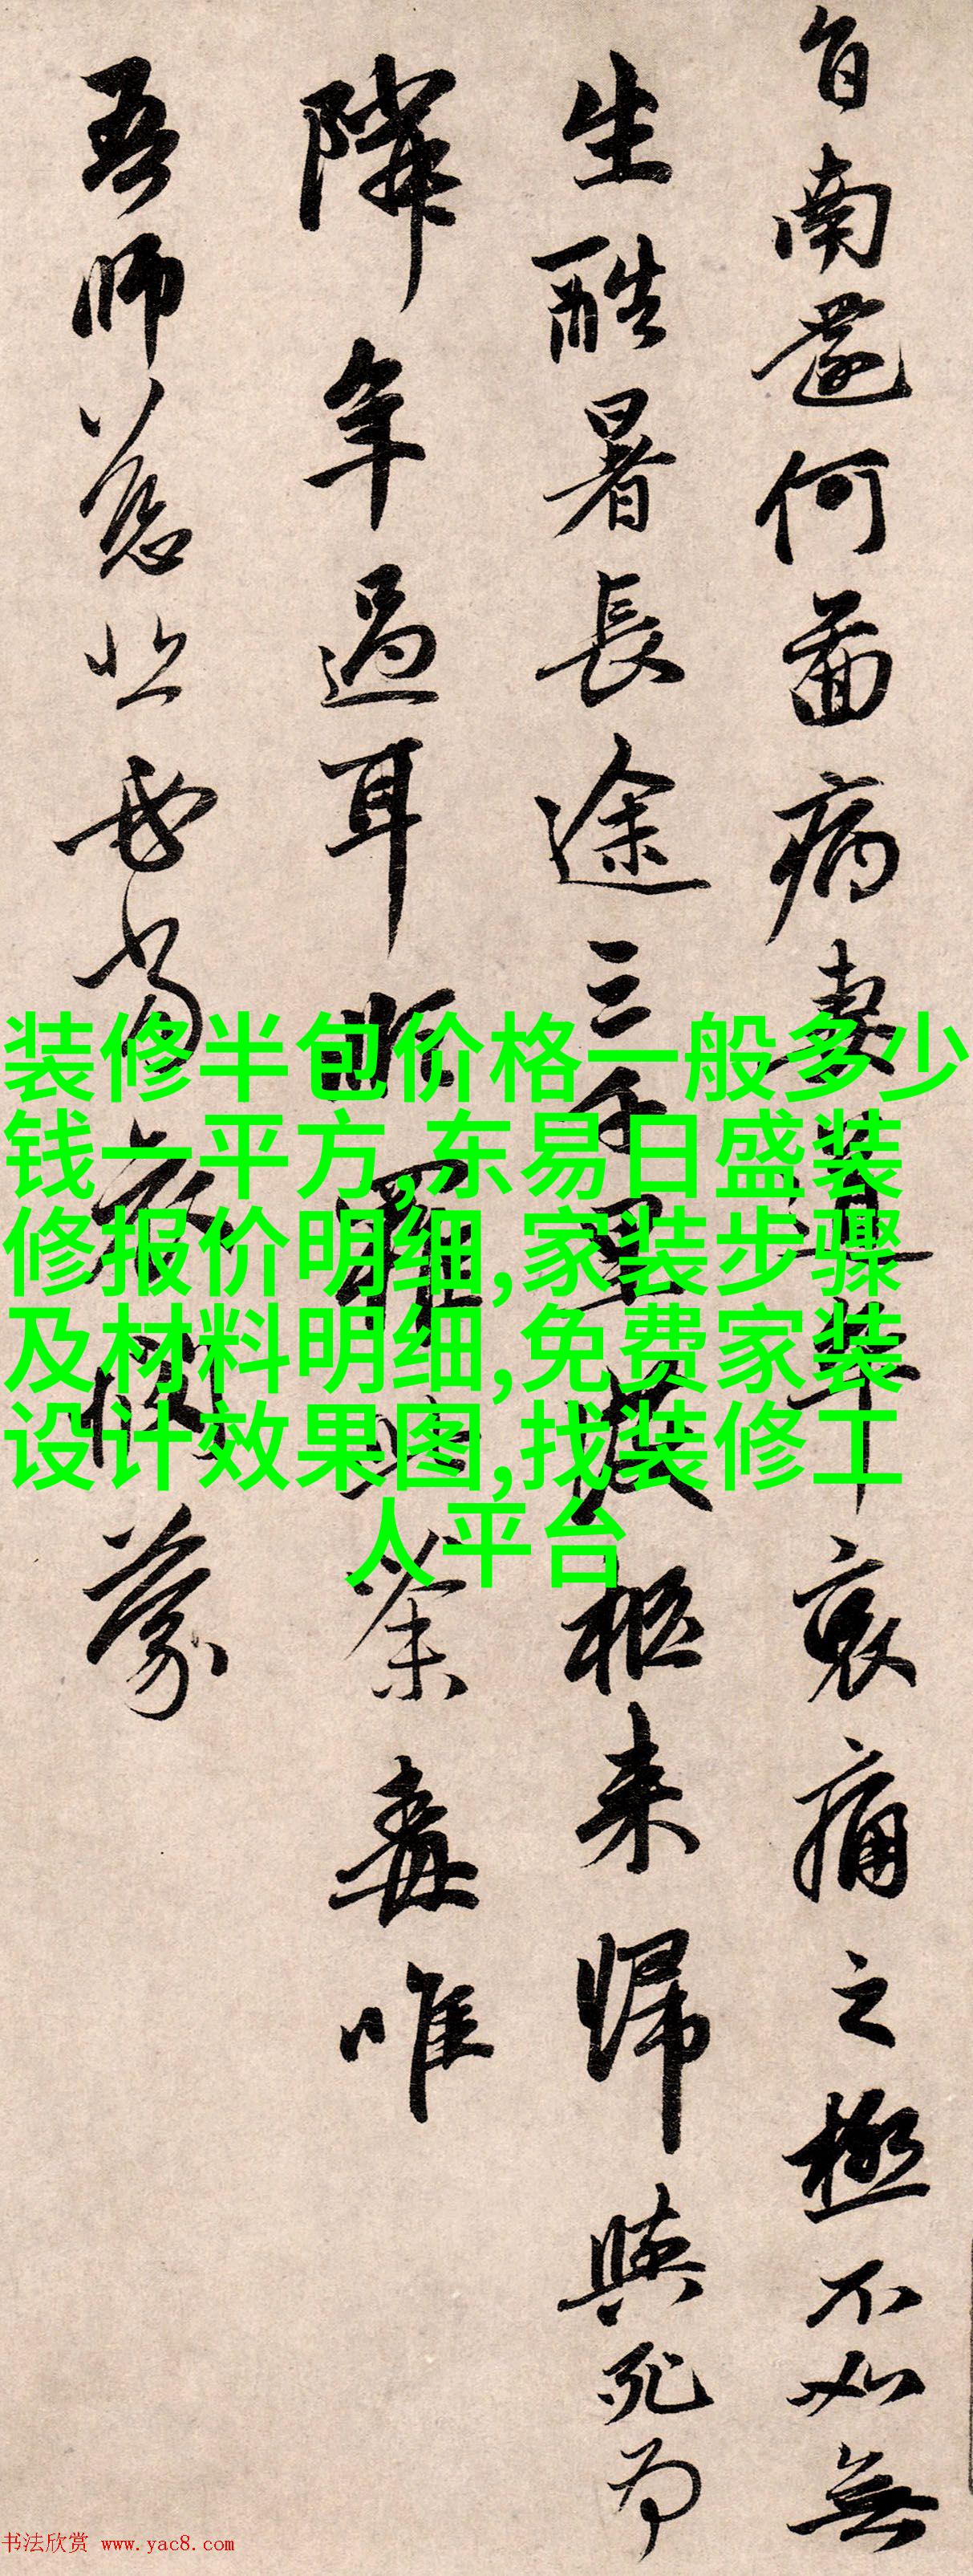 自南還何啚病妻道卒哀痛之極不如無
生酷暑長途三千里護柩来歸與死為
隣年過耳順罹此荼毒唯
吾師慈悲必當哀憫蒙
装修半包价格一般多少
钱一平方,东易日盛装
修报价明细,家装步骤
及材料明细,免费家装
设计效果图,找装修工
人平台
书法欣赏 www.yac8.com